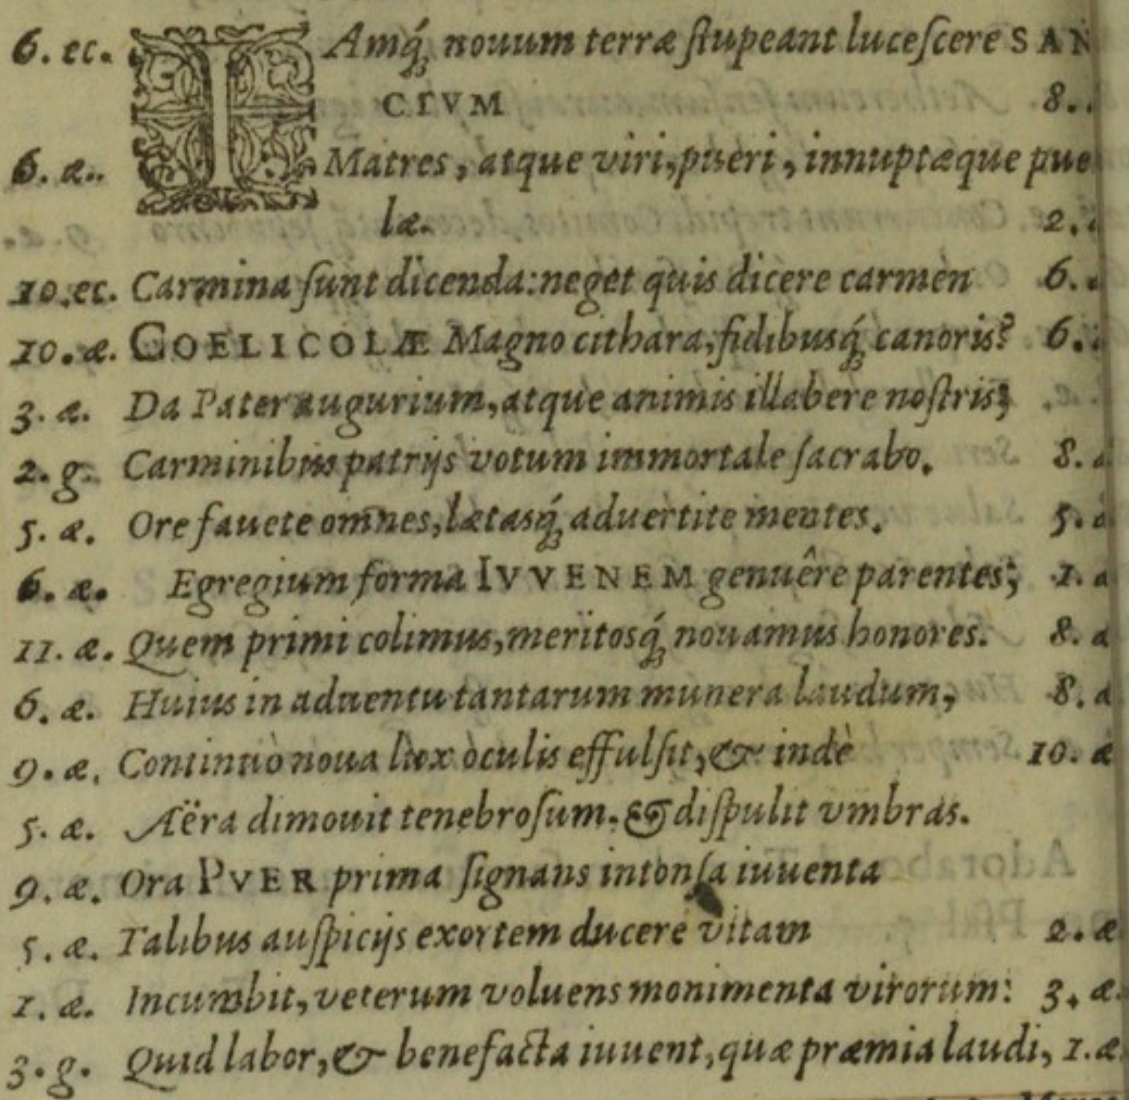 6. ec. IAmq́; nouum terræ ſtupeant luceſcere SAN
CTVM 8.
6. æ. Matres, atque viri, pueri, innuptæque pue
læ. 2.
10. ec. Carmina ſunt dicenda: neget quis dicere carmen 6.
10. æ. COELICOLÆ Magno cithara, fidibusq́; canoris? 6.
3. æ. Da Pater augurium, atque animis illabere noſtris;
2. g. Carminibus patrijs votum immortale ſacrabo. 8.
5. æ. Ore fauete omnes, lætasq́; aduertite mentes. 5.
6. æ. Egregium forma IVVENEM genuêre parentes; 1. a
11. æ. Quem primi colimus, meritosq́; nouamus honores. 8. a
6. æ. Huius in aduentu tantarum munera laudum, 8. a
9. æ. Continuò noua lux oculis effulſit, & indè 10. æ
5. æ. Aëra dimouit tenebroſum. & diſpulit vmbras.
9. æ. Ora PVER prima ſignans intonſa iuuenta
5. æ. Talibus auſpicijs exortem ducere vitam 2. æ
1. æ. Incumbit, veterum voluens monimenta virorum: 3. æ.
3. g. Quid labor, & benefacta iuuent, quæ præmia laudi, 1. æ